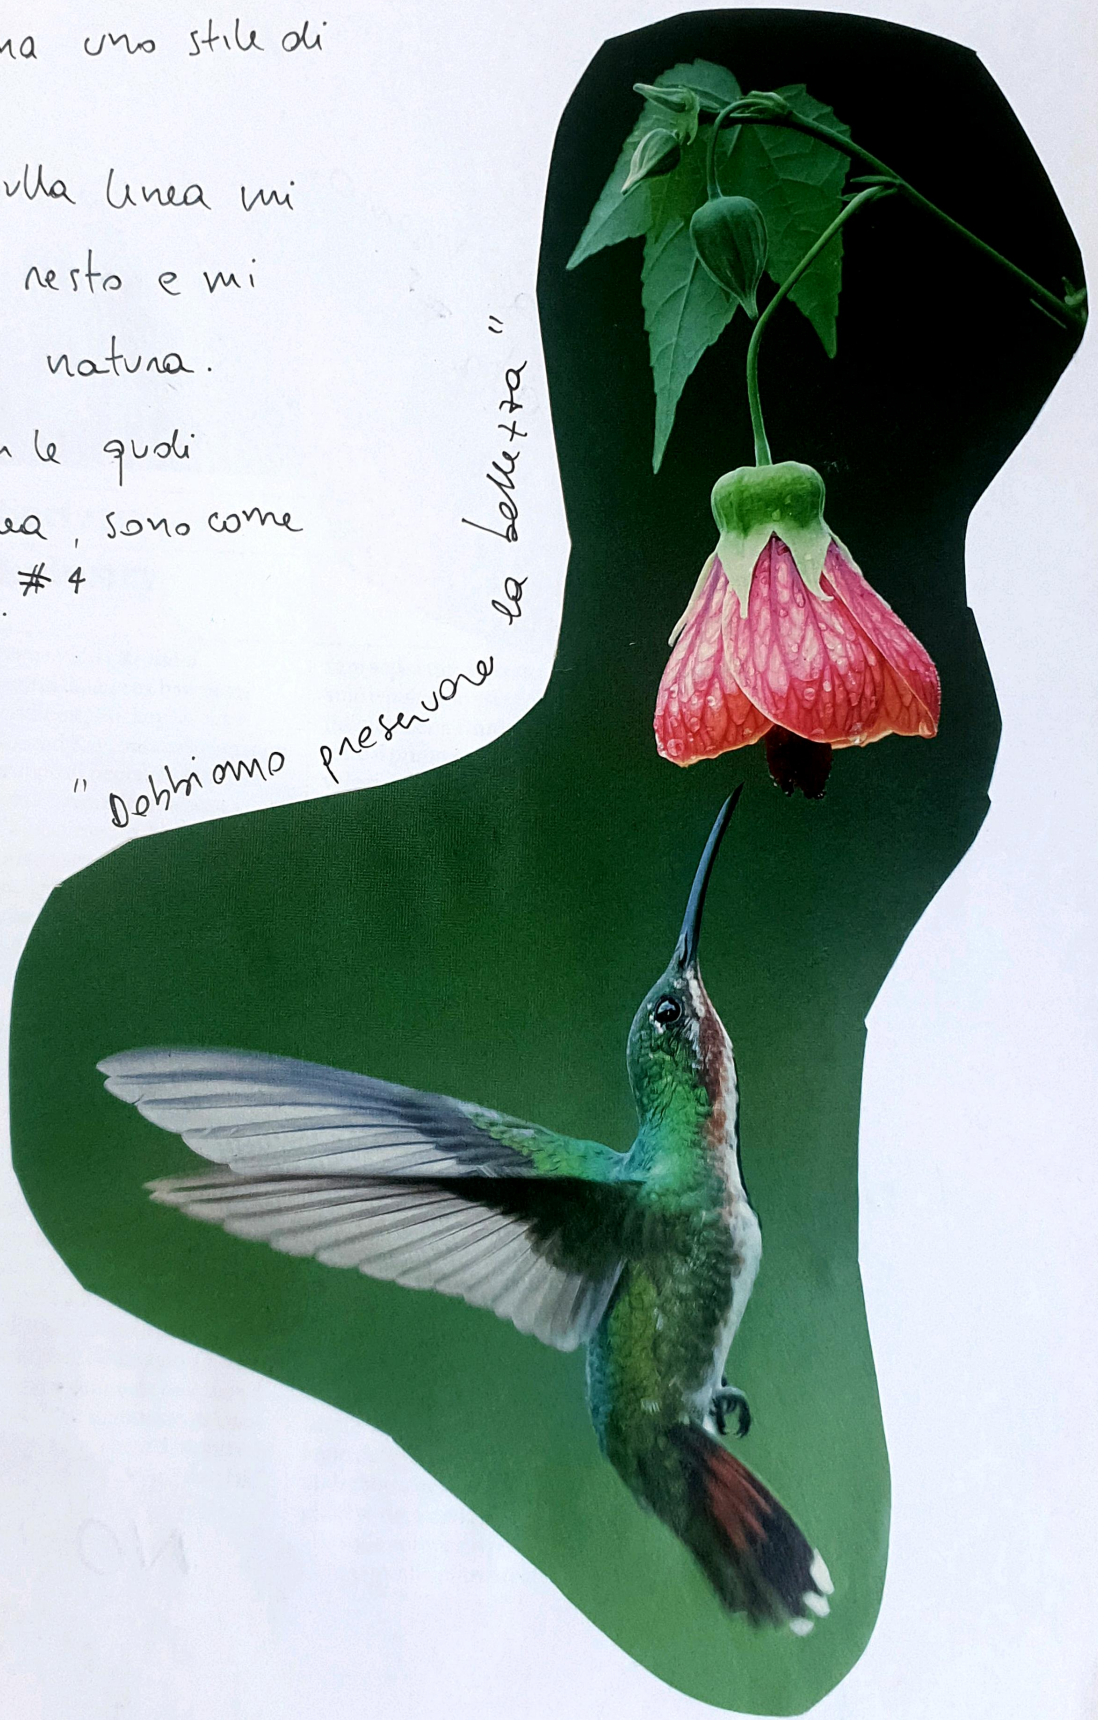 na uno stile di
ulla linea mi
resto e mi
natura.
n le quali
ea, sono come
. # 4
"Debbiamo preservare la bellezza"
NO